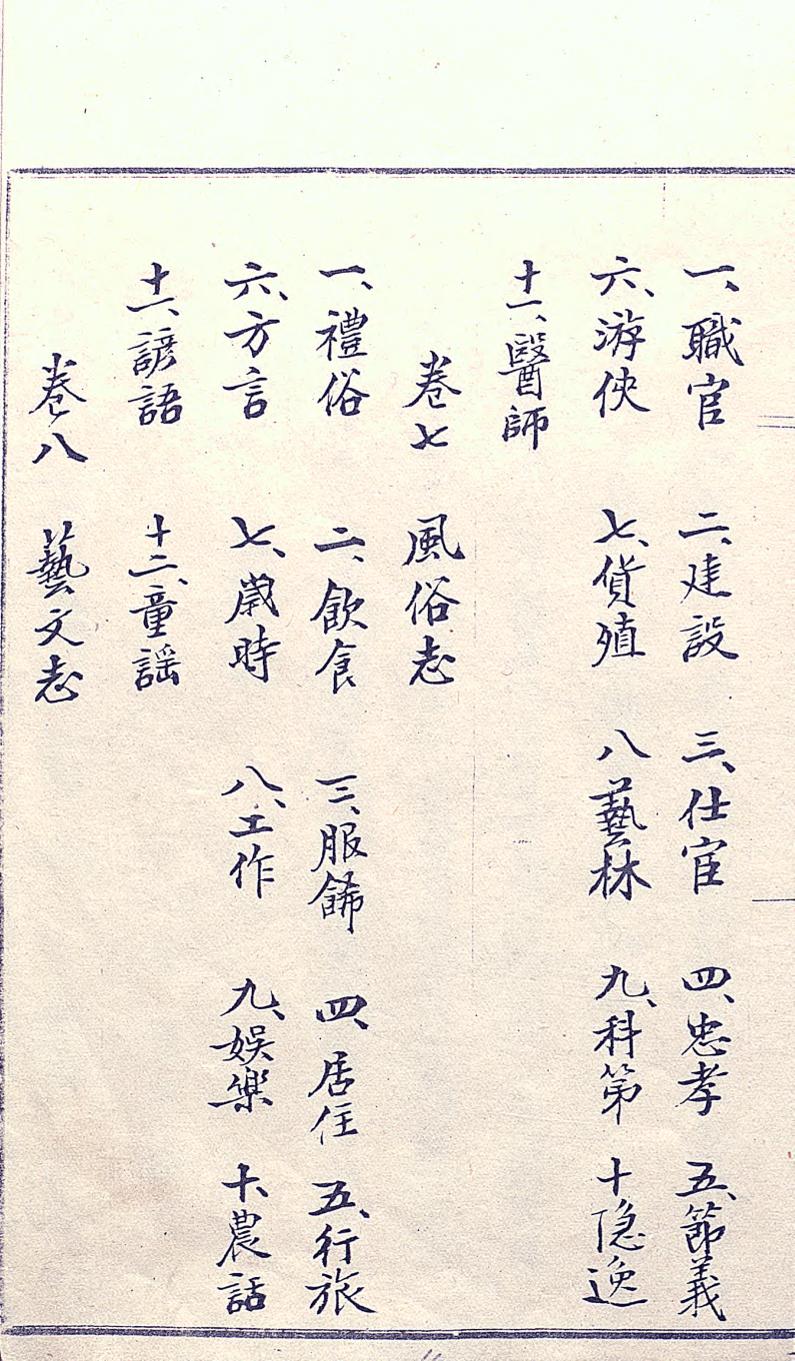 一、職官 二、建設 三、仕宦 四、忠孝 五、節義
六、游俠 七、貨殖 八藝林 九、科第 十隐逸
十一、醫師
卷七 風俗志
一、禮俗 二、飲食 三、服餙 四、居住 五、行旅
六、方言 七、歲時 八、工作 九、娛樂 十、農話
十一、諺語 十二、童謡
卷八 藝文志